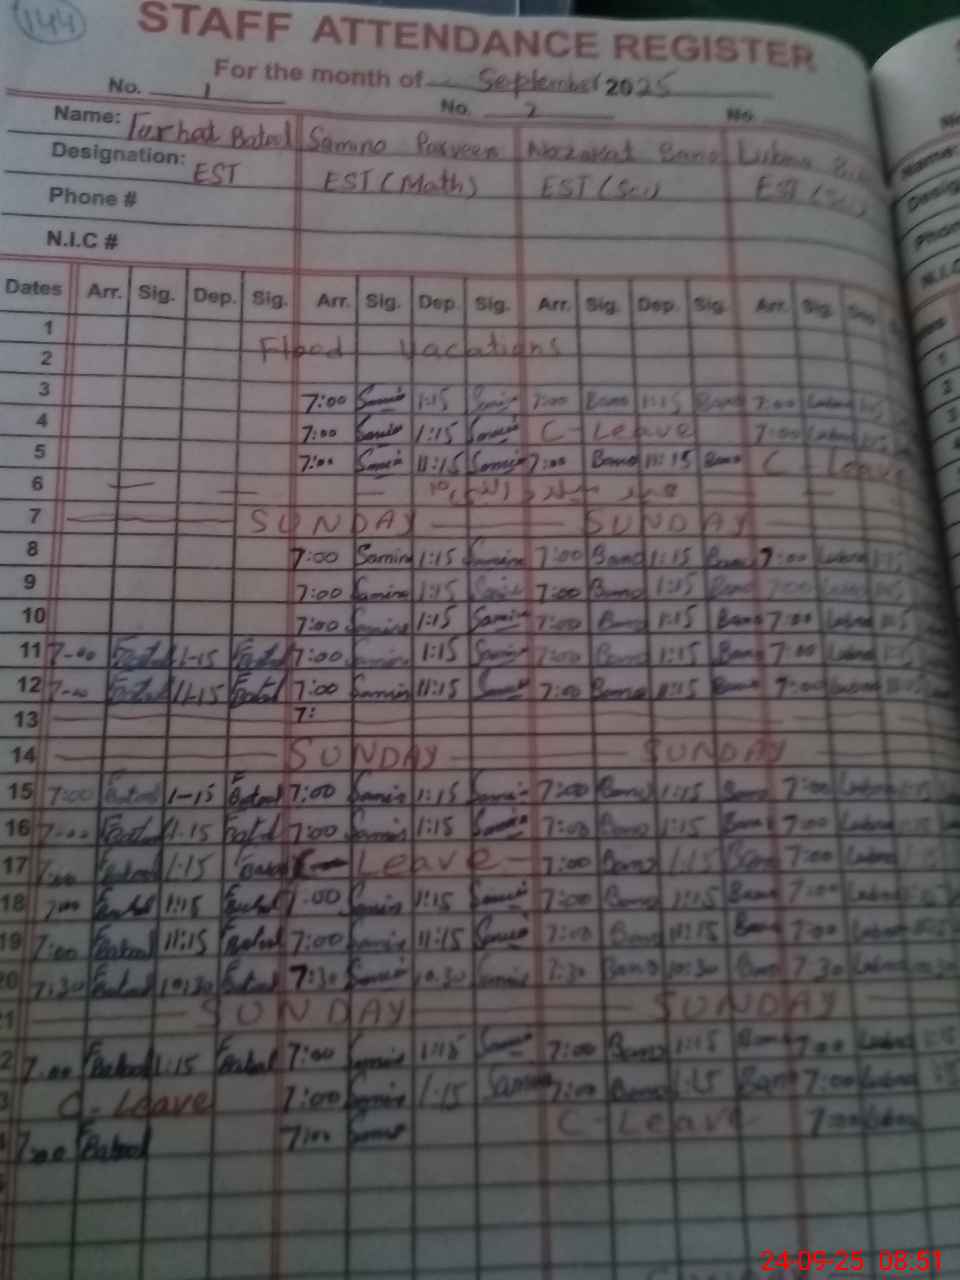 144
STAFF ATTENDANCE REGISTER
For the month of September 2025
No. 1 No. 2 No.
Name: Farhat Batool Samina Parveen Nazakat Bano Lubna
Designation: EST EST (Math) EST (Sci) EST (Sci)
Phone #
N.I.C #
Dates Arr. Sig. Dep. Sig. Arr. Sig. Dep. Sig. Arr. Sig. Dep. Sig. Arr. Sig.
1
2 Flood Vacations
3 7:00 Samin 1:15 Samin 7:00 Bano 1:15 Bano 7:00 Lubna
4 7:00 Samin 1:15 Samin C-Leave 7:00 Lubna
5 7:00 Samin 11:15 Samin 7:00 Bano 11:15 Bano C Leave
6
7 SUNDAY SUNDAY
8 7:00 Samin 1:15 Samin 7:00 Bano 1:15 Bano 7:00 Lubna 1:15
9 7:00 Samin 1:15 Samin 7:00 Bano 1:15 Bano 7:00 Lubna
10 7:00 Samin 1:15 Samin 7:00 Bano 1:15 Bano 7:00 Lubna
11 7-00 Batool 1-15 Batool 7:00 Samin 1:15 Samin 7:00 Bano 1:15 Bano 7:00 Lubna
12 7-00 Batool 11-15 Batool 7:00 Samin 11:15 Samin 7:00 Bano 11:15 Bano 7:00 Lubna
13 7:
14 SUNDAY SUNDAY
15 7:00 Batool 1-15 Batool 7:00 Samin 1:15 Samin 7:00 Bano 1:15 Bano 7:00 Lubna
16 7-00 Batool 1-15 Batool 7:00 Samin 1:15 Samin 7:00 Bano 1:15 Bano 7:00 Lubna
17 7:00 Batool 1:15 Batool Leave 7:00 Bano 1:15 Bano 7:00 Lubna 1:15
18 7:00 Batool 1:15 Batool 7:00 Samin 1:15 Samin 7:00 Bano 1:15 Bano 7:00 Lubna
19 7:00 Batool 11:15 Batool 7:00 Samin 11:15 Samin 7:00 Bano 11:15 Bano 7:00 Lubna
20 7:30 Batool 10:30 Batool 7:30 Samin 10:30 Samin 7:30 Bano 10:30 Bano 7:30 Lubna
SUNDAY SUNDAY
7:00 Batool 1:15 Batool 7:00 Samin 1:15 Samin 7:00 Bano 1:15 Bano 7:00 Lubna
C-Leave 7:00 Samin 1:15 Samin 7:00 Bano 1:15 Bano 7:00 Lubna
7:00 Batool 7:00 Samin C-Leave 7:00 Lubna
24-09-25 08:51